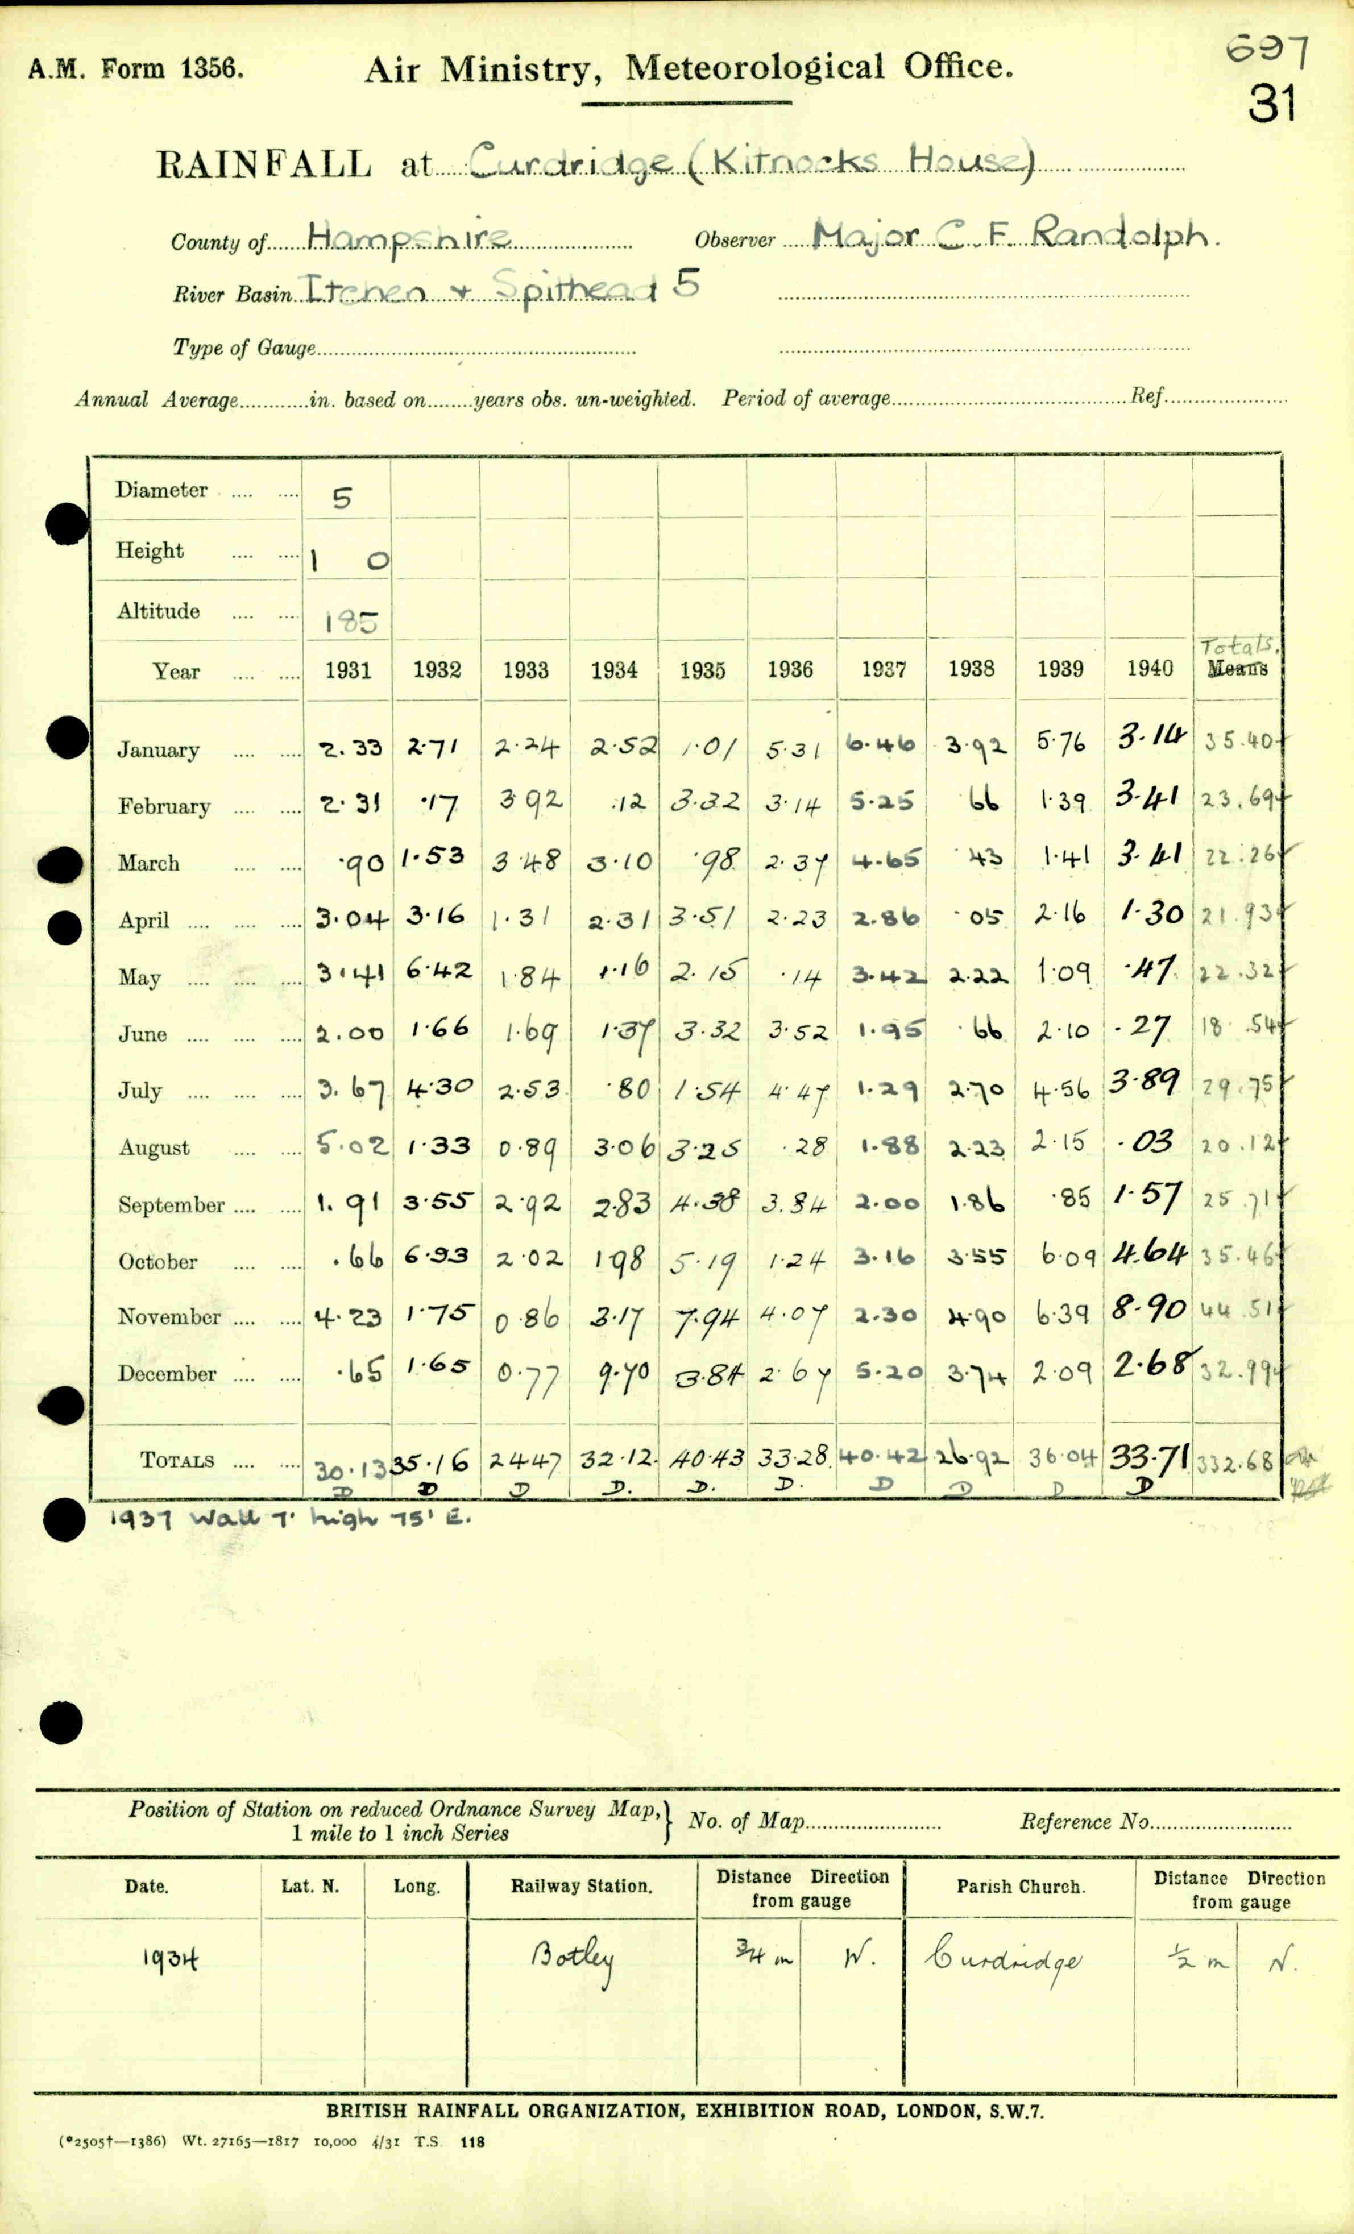 697
A.M. Form 1356. Air Ministry, Meteorological Office.
31
RAINFALL at Curdridge (Kitnocks House)
County of Hampshire Observer Major C. F. Randolph.
River Basin Itchen + Spithead 5
Type of Gauge
Annual Average in. based on years obs. un-weighted. Period of average Ref.
Diameter 5
Height 1 0
Altitude 185
Totals.
Year 1931 1932 1933 1934 1935 1936 1937 1938 1939 1940 Means
January 2.33 2.71 2.24 2.52 1.01 5.31 6.46 3.92 5.76 3.14 35.40
February 2.31 .17 3 92 .12 3.32 3.14 5.25 66 1.39 3.41 23.69
March .90 1.53 3.48 3.10 .98 2.37 4.65 .43 1.41 3.41 22.26
April 3.04 3.16 1.31 2.31 3.51 2.23 2.86 .05 2.16 1.30 21.93
May 3.41 6.42 1.84 1.16 2.15 .14 3.42 2.22 1.09 .47 22.32
June 2.00 1.66 1.69 1.37 3.32 3.52 1.95 .66 2.10 .27 18.54
July 3.67 4.30 2.53 .80 1.54 4.47 1.29 2.70 4.56 3.89 29.75
August 5.02 1.33 0.89 3.06 3.25 .28 1.88 2.23 2.15 .03 20.12
September 1.91 3.55 2.92 2.83 4.38 3.84 2.00 1.86 .85 1.57 25.71
October .66 6.93 2.02 1 98 5.19 1.24 3.16 3.55 6.09 4.64 35.46
November 4.23 1.75 0.86 3.17 7.94 4.07 2.30 4.90 6.39 8.90 44.51
December .65 1.65 0.77 9.70 3.84 2.67 5.20 3.74 2.09 2.68 32.99
TOTALS 30.13 35.16 24 47 32.12 40.43 33.28 40.42 26.92 36.04 33.71 332.68
D D D D. D. D. D D D D
1937 Wall 7' high 75' E.
Position of Station on reduced Ordnance Survey Map, } No. of Map Reference No.
1 mile to 1 inch Series
Date. Lat. N. Long. Railway Station. Distance Direction from gauge Parish Church. Distance Direction from gauge
1934 Botley ¾ m W. Curdridge ½ m N.
BRITISH RAINFALL ORGANIZATION, EXHIBITION ROAD, LONDON, S.W.7.
(*2505†—1386) Wt. 27165—1817 10,000 4/31 T.S. 118